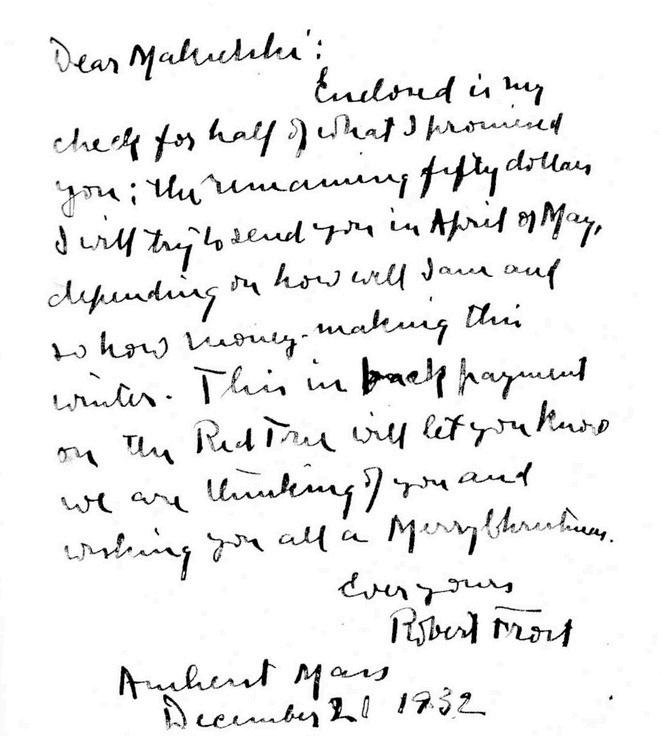 Dear Makielski:
Enclosed is my
check for half of what I promised
you; the remaining fifty dollars
I will try to send you in April or May,
depending on how well I am and
so how money-making this
winter. This in back payment
on the Red Tree will let you know
we are thinking of you and
wishing you all a Merry Christmas.
Ever yours
Robert Frost
Amherst Mass
December 21 1932